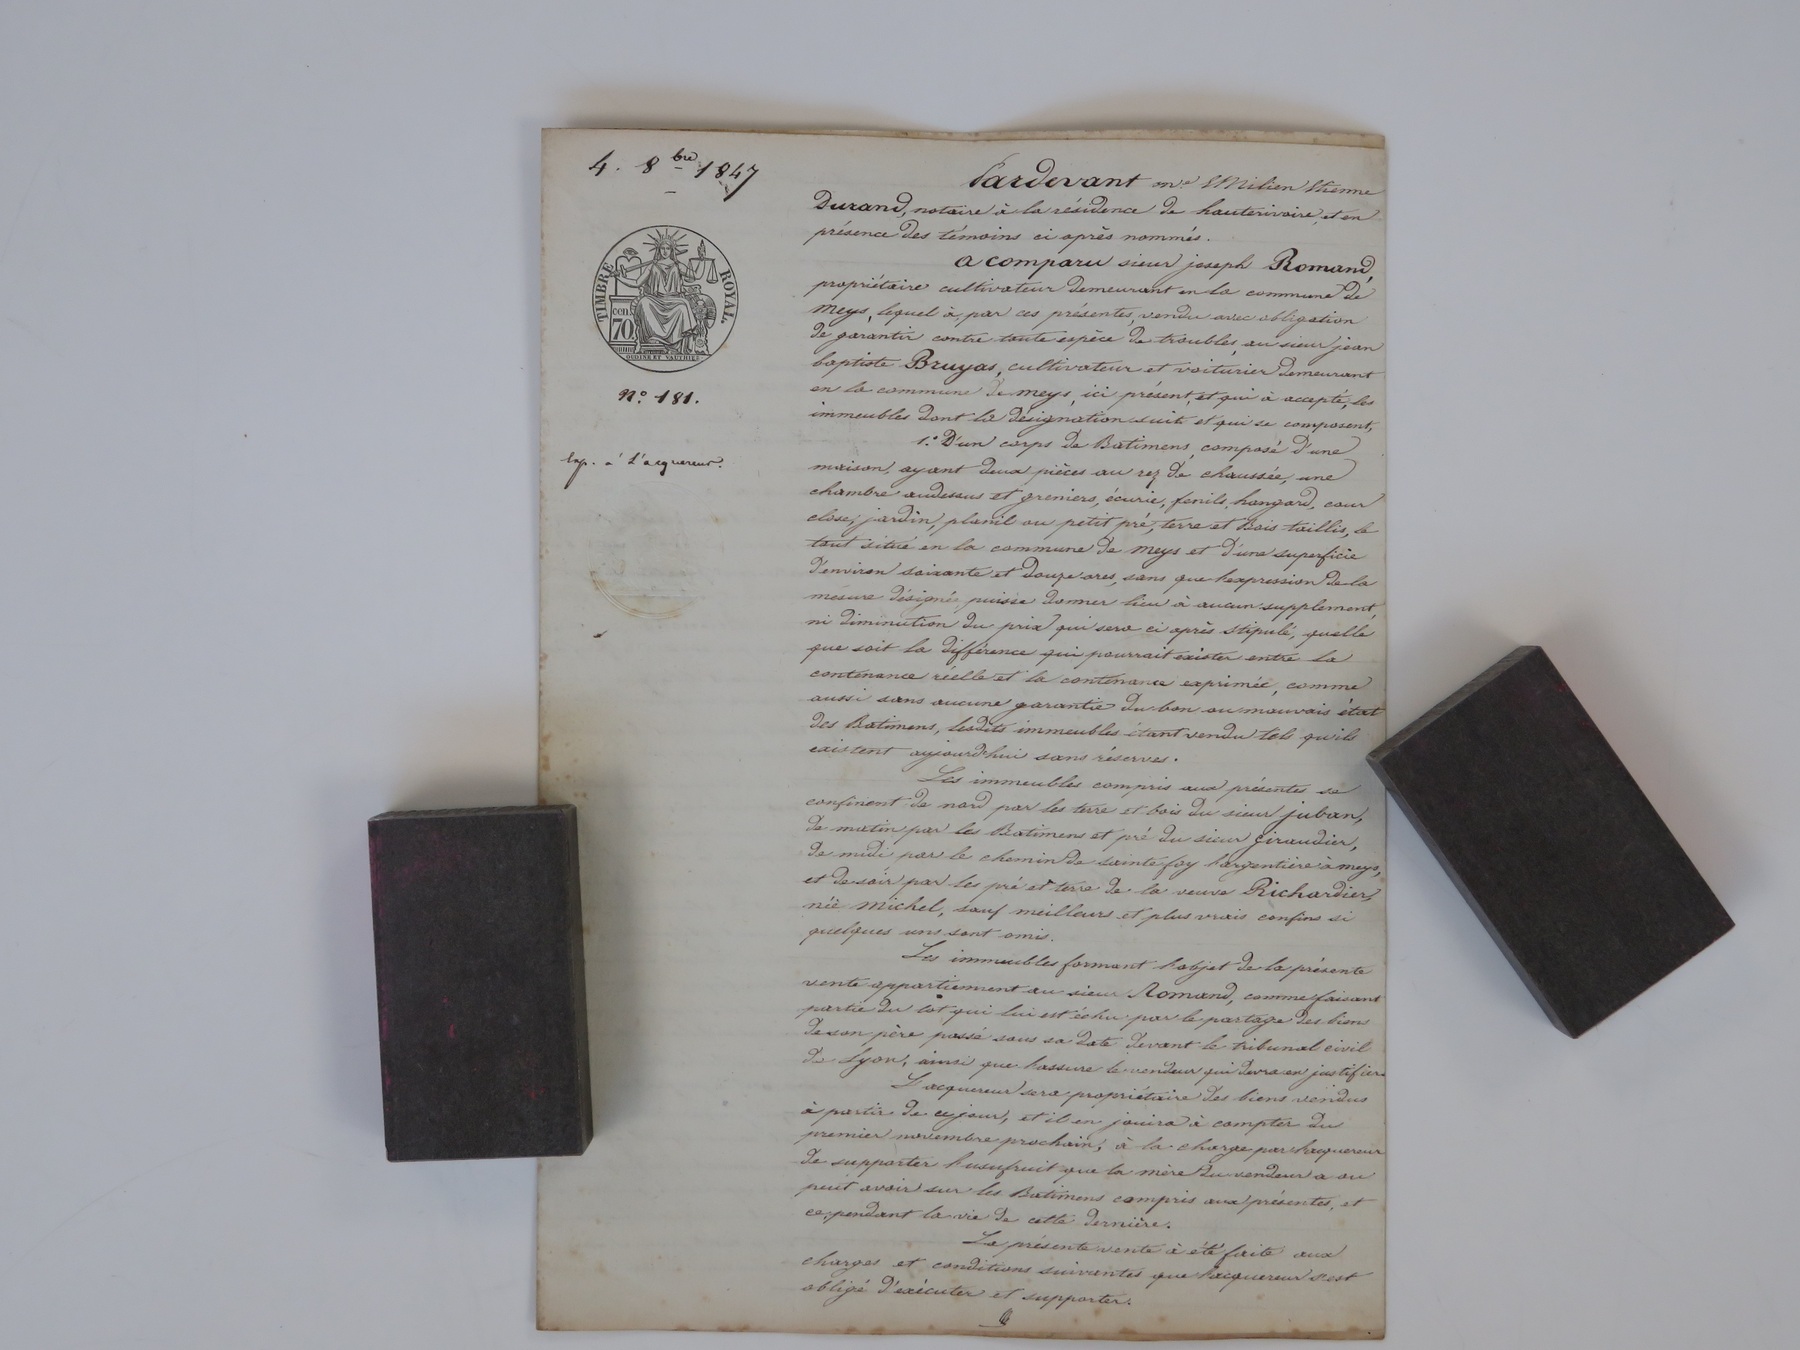 4. 8bre 1847
TIMBRE ROYAL.
cen
70.
OUDINE ET VAUTHIER
N.° 181.
Exp. a' L'acquereur.
Pardevant me Emilien Etienne
Durand, notaire à la résidence de hauterivoire, et en
présence des témoins ci après nommés.
a comparu sieur joseph Romand,
propriétaire cultivateur demeurant en la commune de
Meys, lequel à, par ces présentes, vendu avec obligation
de garantir contre toute espèce de troubles, au sieur jean
baptiste Bruyas, cultivateur et voiturier demeurant
en la commune de meys, ici présent, et qui à accepté, les
immeubles dont la désignation suit et qui se composent,
1.° D'un corps de Batimens, composé d'une
maison, ayant deux pièces au rez de chaussée, une
chambre audessus et greniers, écurie, fenils, hangard, cour
close, jardin, planil ou petit pré, terre et Bois taillis, le
tout situé en la commune de Meys et d'une superficie
d'environ soixante et douze ares, sans que l'expression de la
mesure désignée puisse donner lieu à aucun supplement,
ni diminution du prix qui sera ci après stipulé, quelle
que soit la différence qui pourrait exister entre la
contenance réelle et la contenance exprimée, comme
aussi sans aucune garantie du bon ou mauvais état
des Batimens, lesdits immeubles étant vendu tels qu'ils
existent aujourd'hui sans réserves.
Les immeubles compris aux présentes se
confinent de nord par les terre et bois du sieur juban,
de matin par les Batimens et pré du sieur giraudier,
de midi par le chemin de sainte foy l'argentière à meys,
et de soir par les pré et terre de la veuve Richardier,
née Michel, sauf meilleurs et plus vrais confins si
quelques uns sont omis.
Les immeubles formant l'objet de la présente
vente appartiennent au sieur Romand, comme faisant
partie du lot qui lui est échu par le partage des biens
de son père passé sous sa date devant le tribunal civil
de Lyon, ainsi que l'assure le vendeur qui devra en justifier.
L'acquereur sera propriétaire des biens vendus
à partir de ce jour, et il en jouira à compter du
premier novembre prochain, à la charge par l'acquereur
de supporter l'usufruit que la mère du vendeur a ou
peut avoir sur les Batimens compris aux présentes, et
ce, pendant la vie de cette dernière.
La présente vente à été faite aux
charges et conditions suivantes que l'acquereur s'est
obligé d'exécuter et supporter.